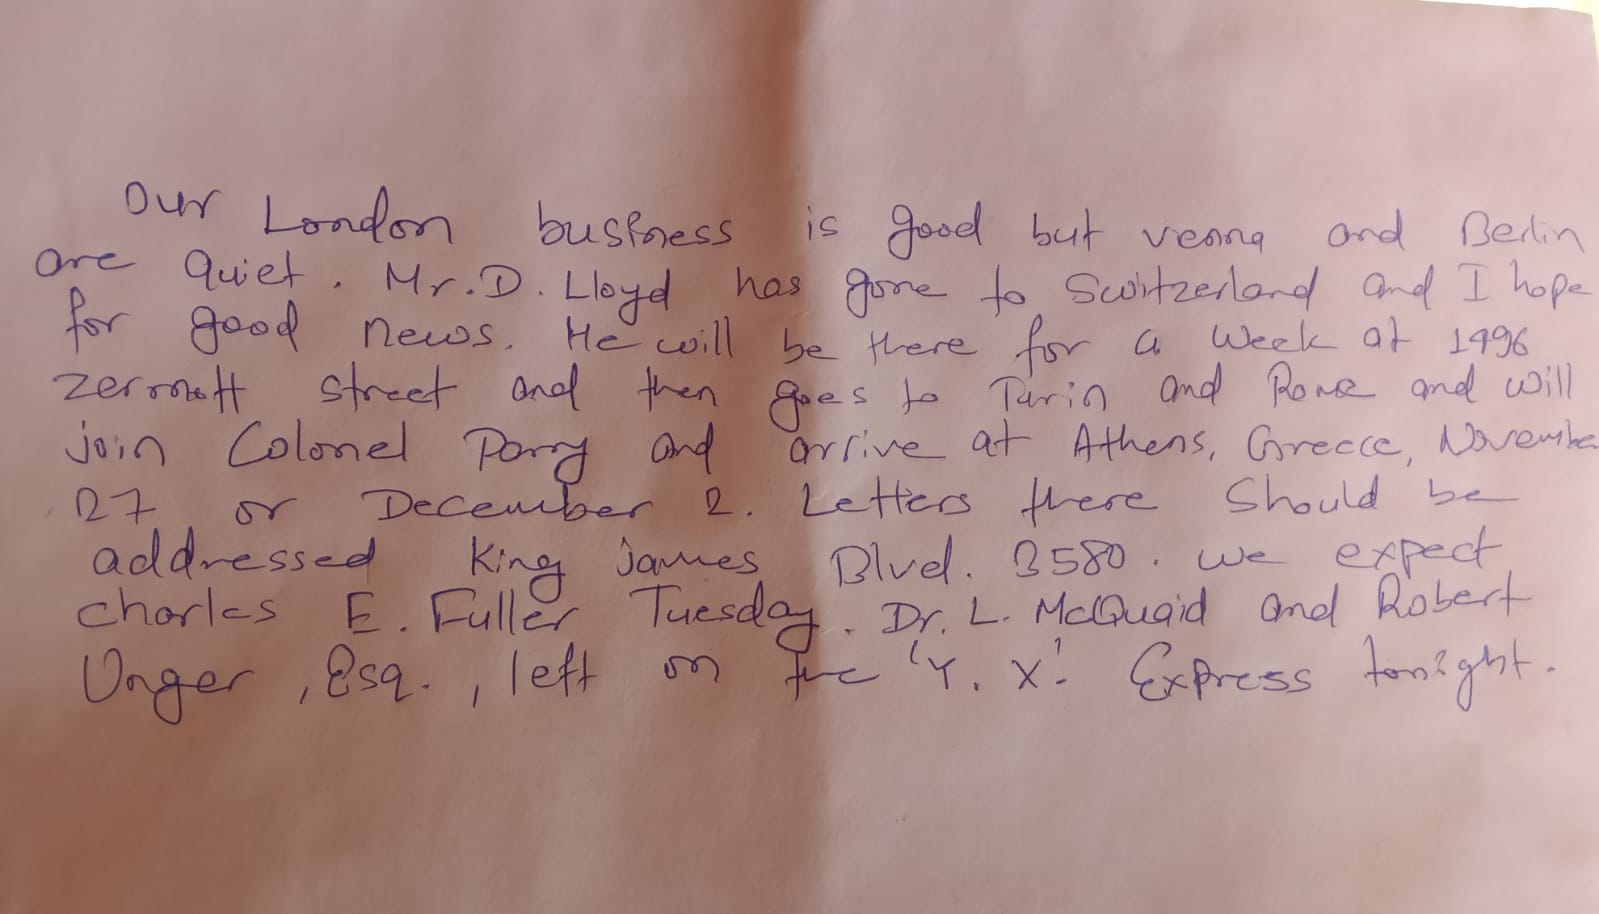 Our London business is good but vienna and Berlin
are quiet. Mr. D. Lloyd has gone to Switzerland and I hope
for good news. He will be there for a week at 1496
zermatt street and then goes to Turin and Rome and will
join Colonel Parry and arrive at Athens, Greece, November
27 or December 2. Letters there should be
addressed King James Blvd. 3580. we expect
charles E. Fuller Tuesday. Dr. L. McQuaid and Robert
Unger, Esq., left on the 'Y. X.' Express tonight.